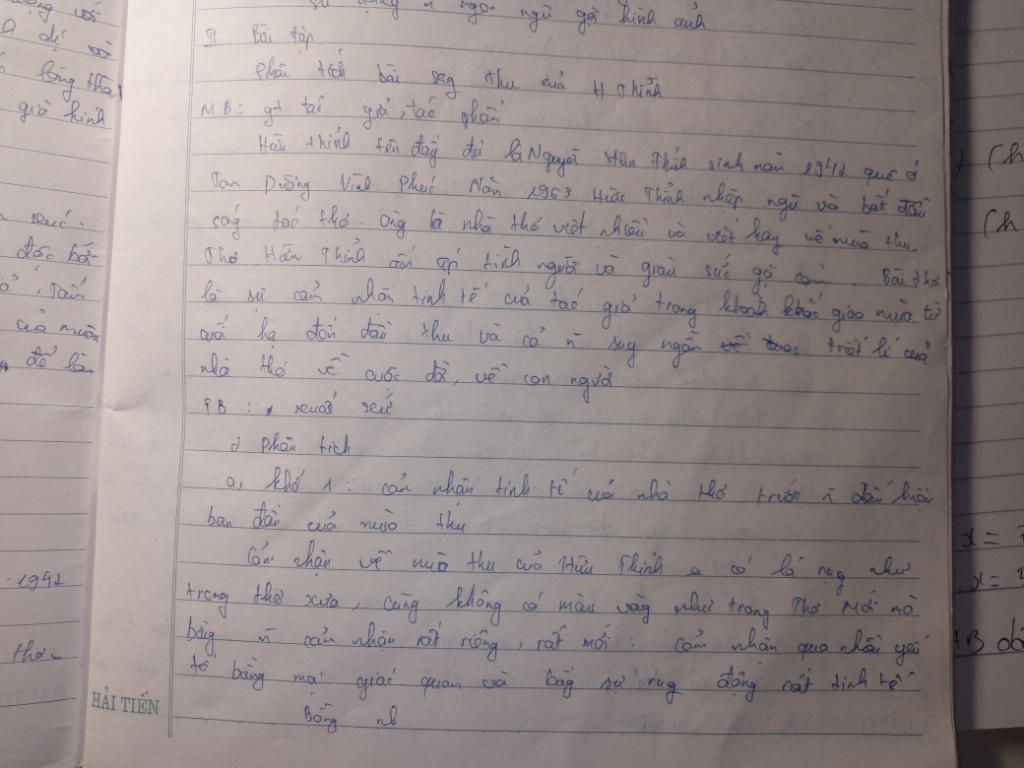 ngôn ngữ gợi hình ảnh
Bài tập
Phân tích bài sag thu của H Thỉnh
MB: gt tác giả, tác phẩm
Hữu Thỉnh tên đầy đủ là Nguyễn Hữu Thỉnh sinh năm 1942 quê ở
Tam Dương Vĩnh Phúc Năm 1963 Hữu Thỉnh nhập ngũ và bắt đầu
ság tác thơ. Ông là nhà thơ viết nhiều và viết hay về mùa thu.
Thơ Hữu Thỉnh ấm áp tình người và giàu sức gợi cảm. Bài thơ
là sự cảm nhận tinh tế của tác giả trong khoảnh khắc giao mùa từ
cuối hạ đến đầu thu và cả n~ suy ngẫm triết lí của
nhà thơ về cuộc đời, về con người
TB: 1 xuất xứ
2 Phân tích
a, khổ 1: cảm nhận tinh tế của nhà thơ trước n~ dấu hiệu
ban đầu của mùa thu
Cảm nhận về mùa thu của Hữu Thỉnh có lá rụg như
trong thơ xưa, cũng không có màu vàng như trong Thơ Mới mà
bằng n~ cảm nhận rất riêng, rất mới: cảm nhận qua nhiều yếu
tố bằng mọi giác quan và bằg sự rug động rất tinh tế
Bỗng nh
gió hình
đốc bất
của mùa
1942
thơ
HẢI TIẾN
(h
(h
x =
x =